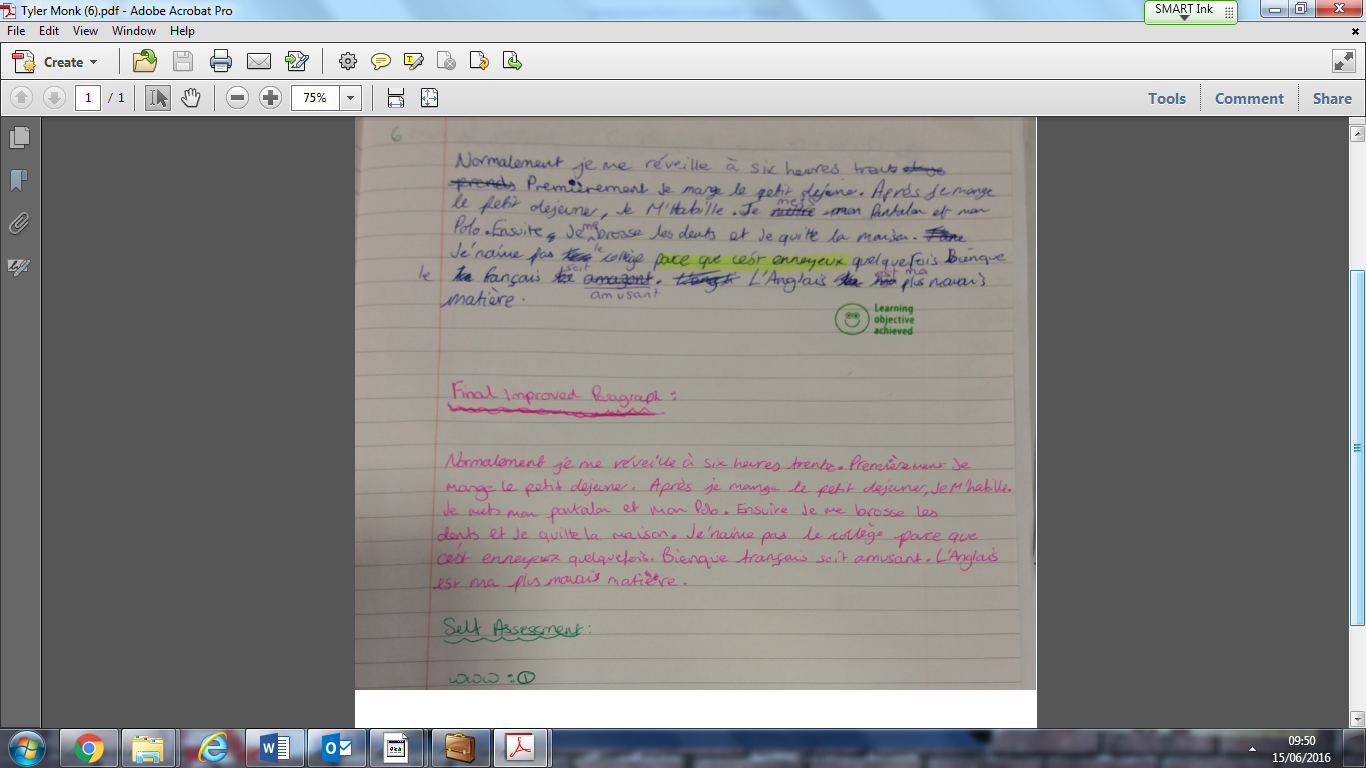 Tyler Monk (6).pdf - Adobe Acrobat Pro
SMART Ink
File Edit View Window Help
Create
1 / 1 75% Tools Comment Share
6
Normalement je me réveille à six heures trente
prends Premièrement Je mange le petit dejeune. Après je mange
le petit dejeuner, Je M'Habille. Je mets mon Pantalon et mon
Polo. Ensuite, Je me brosse les dents et Je quitte la maison.
Je'naime pas le collège pace que ceést enneyeux quelquefois Bienque
le français soit amazant. L'Anglais est ma plus mavais
amusant
matière.
Learning
objective
achieved
Final Improved Paragraph:
Normalement je me réveille à six heures trente. Premièrement Je
mange le petit dejeuner. Après je mange le petit dejeuner, Je M'habille.
Je mets mon pantalon et mon Polo. Ensuire Je me brosse les
dents et Je quitte la maison. Je'naime pas le collège parce que
ceést enneyeux quelquefois. Bienque français soit amusant. L'Anglais
est ma plus mavais matière.
Self Assessment:
WWW : 1
09:50
15/06/2016